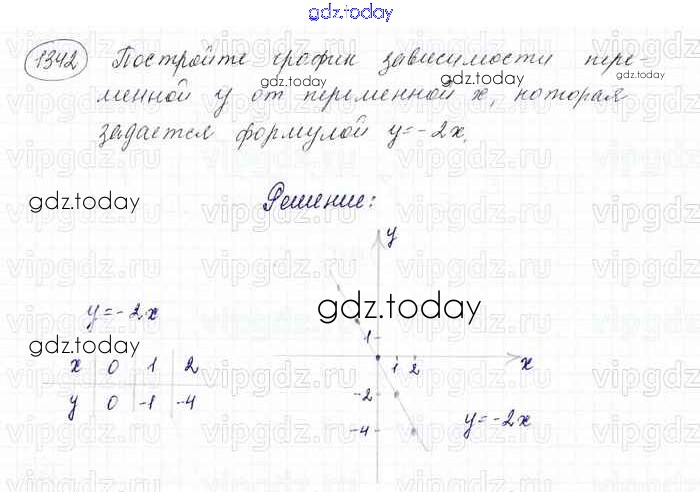 gdz.today
1342 Постройте график зависимости пере-
gdz.today gdz.today
менной y от переменной x, которая
задается формулой y=-2x.
gdz.today
gdz.today Решение:
y
y=-2x
gdz.today
1
gdz.today
x 0 1 2
1 2 x
y 0 -1 -4
-2
y=-2x
-4
vipgdz.ru